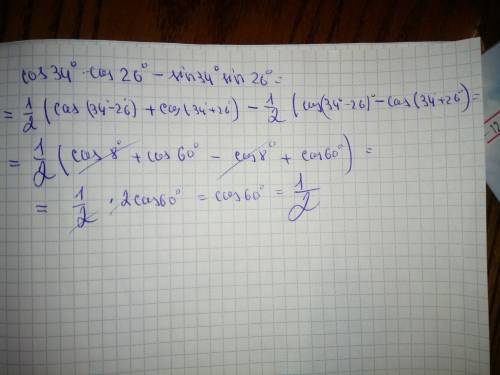 cos34°·cos26° − sin34° sin26° =
= 1/2 (cos(34°−26) + cos(34°+26)) − 1/2 (cos(34°−26)° − cos(34+26°) =
= 1/2 (cos8° + cos60° − cos8° + cos60°) =
= 1/2 · 2cos60° = cos60° = 1/2